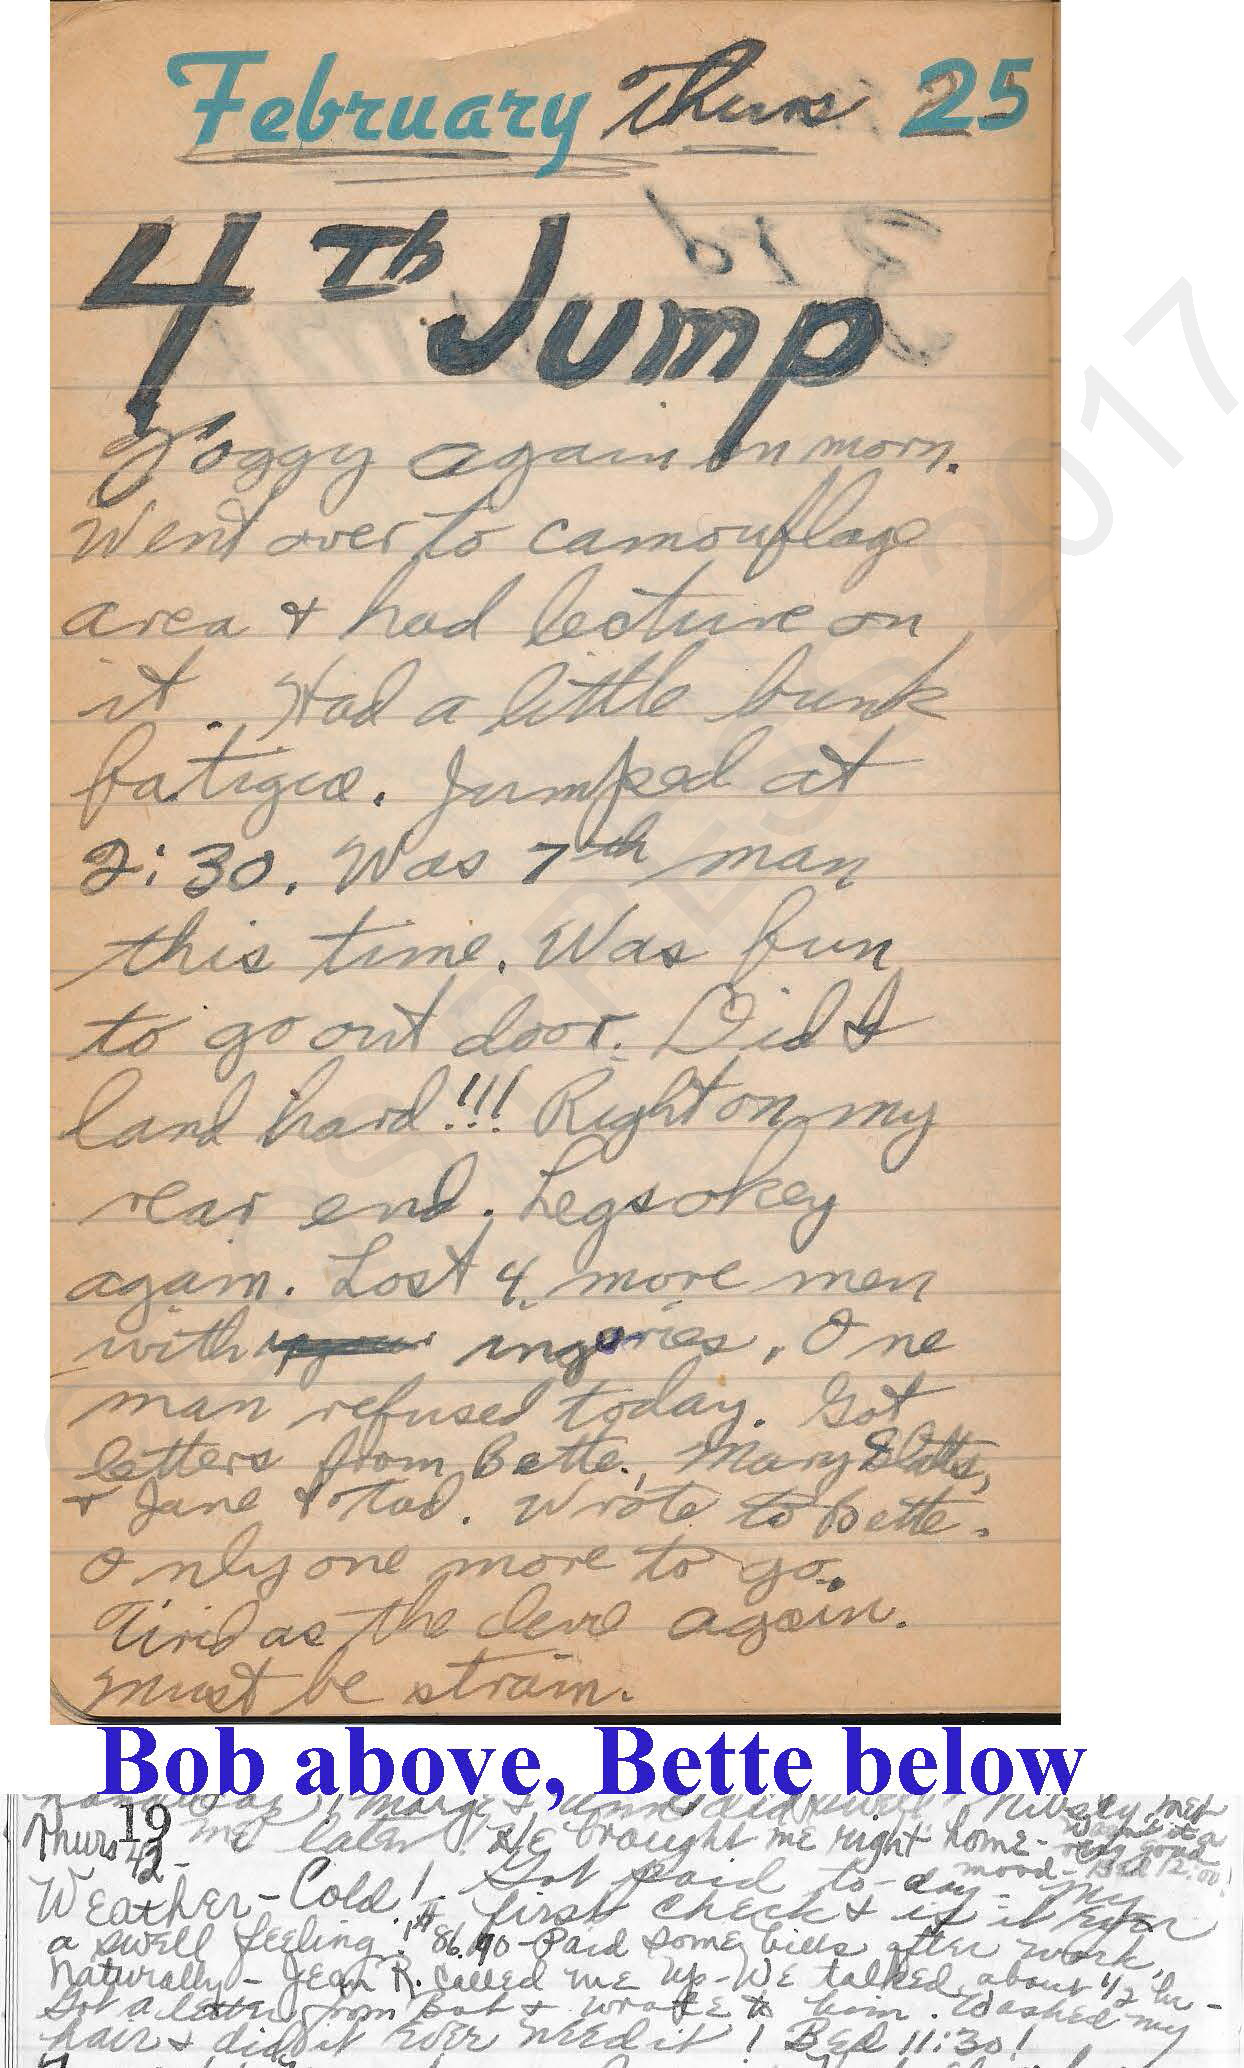 February Thurs 25
4th Jump
Foggy again in morn.
Went over to camouflage
area & had lecture on
it. Had a little bunk
fatigue. Jumped at
2:30. Was 7th man
this time. Was fun
to go out door. Did I
land hard!!! Right on my
rear end. Legs okey
again. Lost 4 more men
with ingories. One
man refused today. Got
letters from Bette, Mary
& Jane & Tad. Wrote to Bette.
Only one more to go.
Tired as the devil again.
Must be strain.
© PRESS 2017
Bob above, Bette below
Marge &
Thurs 19 me later. He brought me right home - Wasn't in a
42 - very good
mood - Bed 12:00!
Weather - Cold! Got paid to-day - My
first check & is it ever
a swell feeling! $86.90 - Paid some bills after work,
Naturally - Jean R. called me up - We talked about 1/2 hr -
Got a letter from Bob & wrote to him. Washed my
hair & did it ever need it! Bed 11:30!